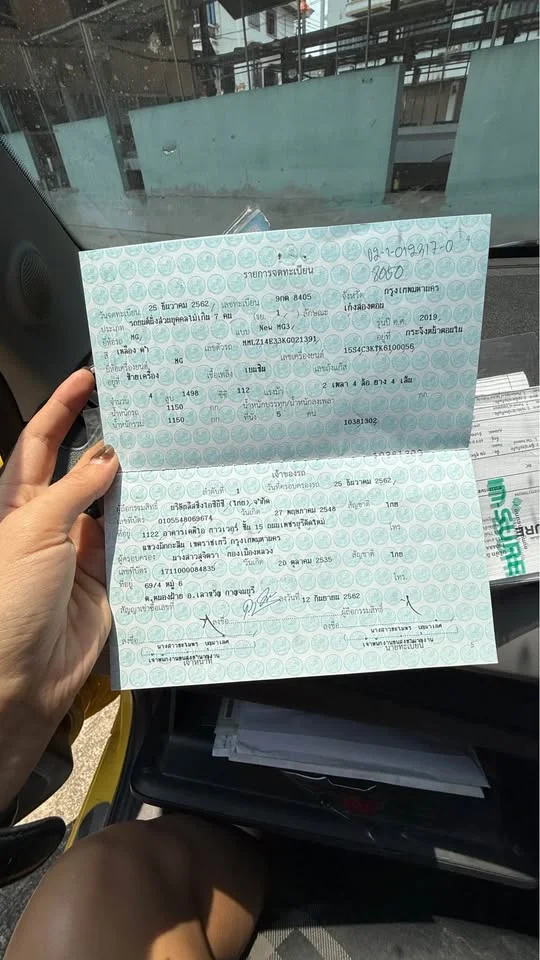 02-1-012317-0
8050
รายการจดทะเบียน
วันจดทะเบียน 25 ธันวาคม 2562 เลขทะเบียน 9กต 8405 จังหวัด กรุงเทพมหานคร
ประเภท รถยนต์นั่งส่วนบุคคลไม่เกิน 7 คน (รย. 1) ลักษณะ เก๋งสองตอน
ยี่ห้อรถ MG แบบ New MG3 รุ่นปี ค.ศ. 2019
สี เหลือง ดำ เลขตัวรถ MMLZ14E33KG021391 อยู่ที่ กระจังหน้าตอนใน
ยี่ห้อเครื่องยนต์ MG เลขเครื่องยนต์ 15S4C3KTK6100056
อยู่ที่ ซ้ายเครื่อง เชื้อเพลิง เบนซิน เลขถังแก๊ส
จำนวน 4 สูบ 1498 ซีซี 112 แรงม้า 2 เพลา 4 ล้อ ยาง 4 เส้น
น้ำหนักรถ 1150 กก น้ำหนักบรรทุก/น้ำหนักลงเพลา กก
น้ำหนักรวม 1150 กก ที่นั่ง 5 คน
10381302
เจ้าของรถ
ลำดับที่ 1 วันที่ครอบครองรถ 25 ธันวาคม 2562
ผู้ถือกรรมสิทธิ์ บริษัทลีสซิ่งไอซีบีซี (ไทย) จำกัด
เลขที่บัตร 0105548069674 วันเกิด 27 พฤษภาคม 2548 สัญชาติ ไทย
ที่อยู่ 1122 อาคารเคพีไอ ทาวเวอร์ ชั้น 15 ถนนเพชรบุรีตัดใหม่
แขวงมักกะสัน เขตราชเทวี กรุงเทพมหานคร โทร
ผู้ครอบครอง นางสาวสุจิตรา ทองเมืองหลวง
เลขที่บัตร 1711000084835 วันเกิด 20 ตุลาคม 2535 สัญชาติ ไทย
ที่อยู่ 69/4 หมู่ 6
ต.หนองฝ้าย อ.เลาขวัญ กาญจนบุรี โทร.
สัญญาเช่าซื้อเลขที่ ลงวันที่ 12 กันยายน 2562
ลงชื่อ ผู้ถือกรรมสิทธิ์
ลงชื่อ ลงชื่อ
เจ้าพนักงานขนส่งชำนาญงาน เจ้าพนักงานขนส่งชำนาญงาน
เจ้าหน้าที่ นายทะเบียน
5
imSURE